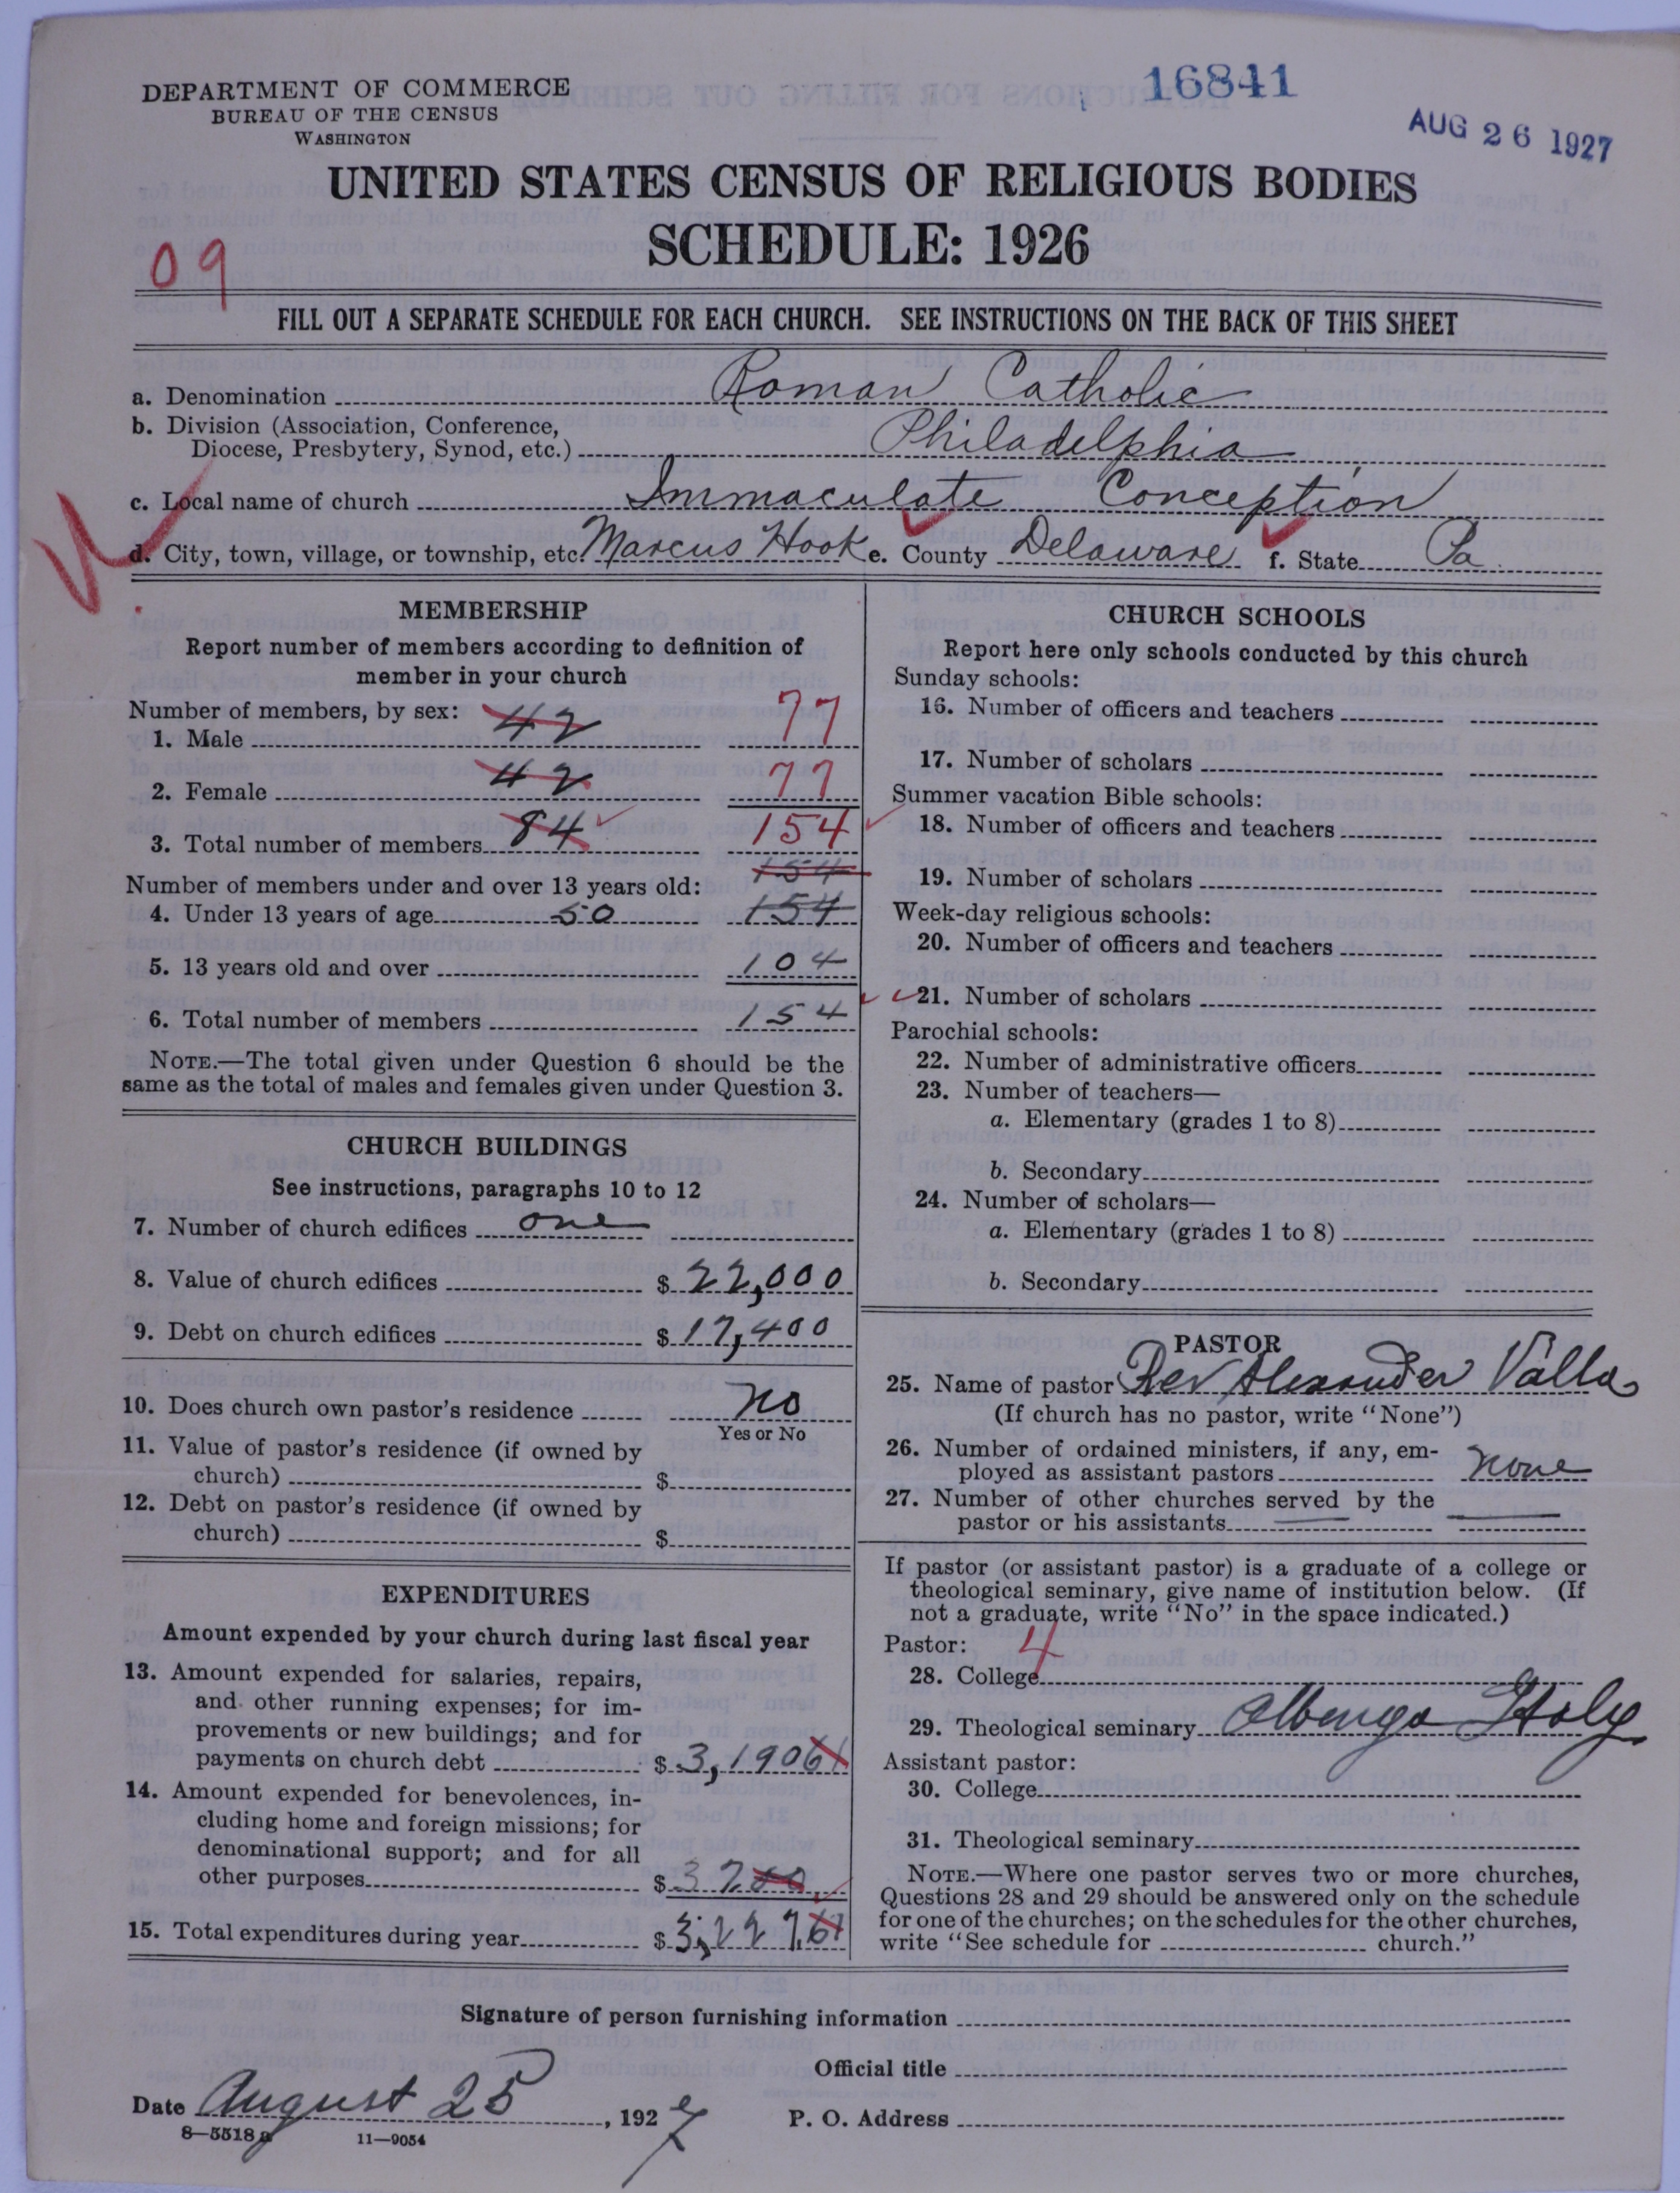 DEPARTMENT OF COMMERCE
BUREAU OF THE CENSUS
WASHINGTON
16841
AUG 26 1927
UNITED STATES CENSUS OF RELIGIOUS BODIES
SCHEDULE: 1926
09
FILL OUT A SEPARATE SCHEDULE FOR EACH CHURCH. SEE INSTRUCTIONS ON THE BACK OF THIS SHEET
a. Denomination Roman Catholic
b. Division (Association, Conference,
Diocese, Presbytery, Synod, etc.) Philadelphia
c. Local name of church Immaculate Conception
d. City, town, village, or township, etc. Marcus Hook e. County Delaware f. State Pa.
MEMBERSHIP
Report number of members according to definition of
member in your church
Number of members, by sex:
1. Male 42 77
2. Female 42 77
3. Total number of members 84 154
154
Number of members under and over 13 years old:
4. Under 13 years of age 50 154
5. 13 years old and over 104
6. Total number of members 154
NOTE.—The total given under Question 6 should be the
same as the total of males and females given under Question 3.
CHURCH BUILDINGS
See instructions, paragraphs 10 to 12
7. Number of church edifices one
8. Value of church edifices $ 22,000
9. Debt on church edifices $ 17,400
10. Does church own pastor's residence no
Yes or No
11. Value of pastor's residence (if owned by
church) $
12. Debt on pastor's residence (if owned by
church) $
EXPENDITURES
Amount expended by your church during last fiscal year
13. Amount expended for salaries, repairs,
and other running expenses; for im-
provements or new buildings; and for
payments on church debt $ 3,190 61
14. Amount expended for benevolences, in-
cluding home and foreign missions; for
denominational support; and for all
other purposes $ 37 00
15. Total expenditures during year $ 3,227.61
CHURCH SCHOOLS
Report here only schools conducted by this church
Sunday schools:
16. Number of officers and teachers
17. Number of scholars
Summer vacation Bible schools:
18. Number of officers and teachers
19. Number of scholars
Week-day religious schools:
20. Number of officers and teachers
21. Number of scholars
Parochial schools:
22. Number of administrative officers
23. Number of teachers—
a. Elementary (grades 1 to 8)
b. Secondary
24. Number of scholars—
a. Elementary (grades 1 to 8)
b. Secondary
PASTOR
25. Name of pastor Rev Alexander Valla
(If church has no pastor, write "None")
26. Number of ordained ministers, if any, em-
ployed as assistant pastors none
27. Number of other churches served by the
pastor or his assistants
If pastor (or assistant pastor) is a graduate of a college or
theological seminary, give name of institution below. (If
not a graduate, write "No" in the space indicated.)
Pastor: 4
28. College
29. Theological seminary Albenga Italy
Assistant pastor:
30. College
31. Theological seminary
NOTE.—Where one pastor serves two or more churches,
Questions 28 and 29 should be answered only on the schedule
for one of the churches; on the schedules for the other churches,
write "See schedule for church."
Signature of person furnishing information
Official title
Date August 25, 1927 P. O. Address
8—5518 a 11—9054